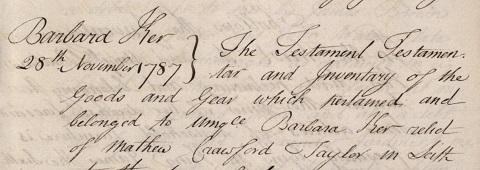 Barbard Ker
28th November 1787 } The Testament Testamen-
tar and Inventary of the
Goods and Gear which pertained and
belonged to umqle Barbara Ker relict
of Mathew Crawford Taylor in Leith